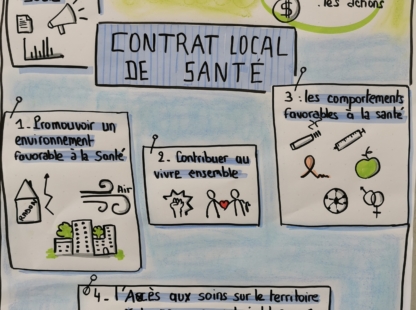 : les actions
$
CONTRAT LOCAL
DE SANTÉ
3 : les comportements
favorables à la santé
1. Promouvoir un
environnement
favorable à la Santé
Air
2. Contribuer au
vivre ensemble
4. l'Accès aux soins sur le territoire